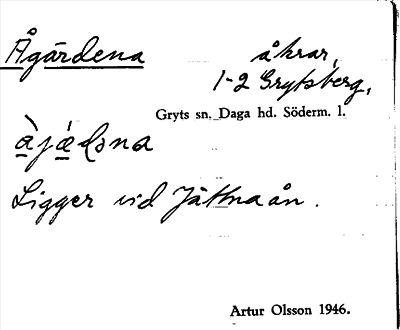 Ågärdena
åkrar,
1-2 Grytsberg,
Gryts sn. Daga hd. Söderm. l.
Ligger vid Jättnaån.
Artur Olsson 1946.